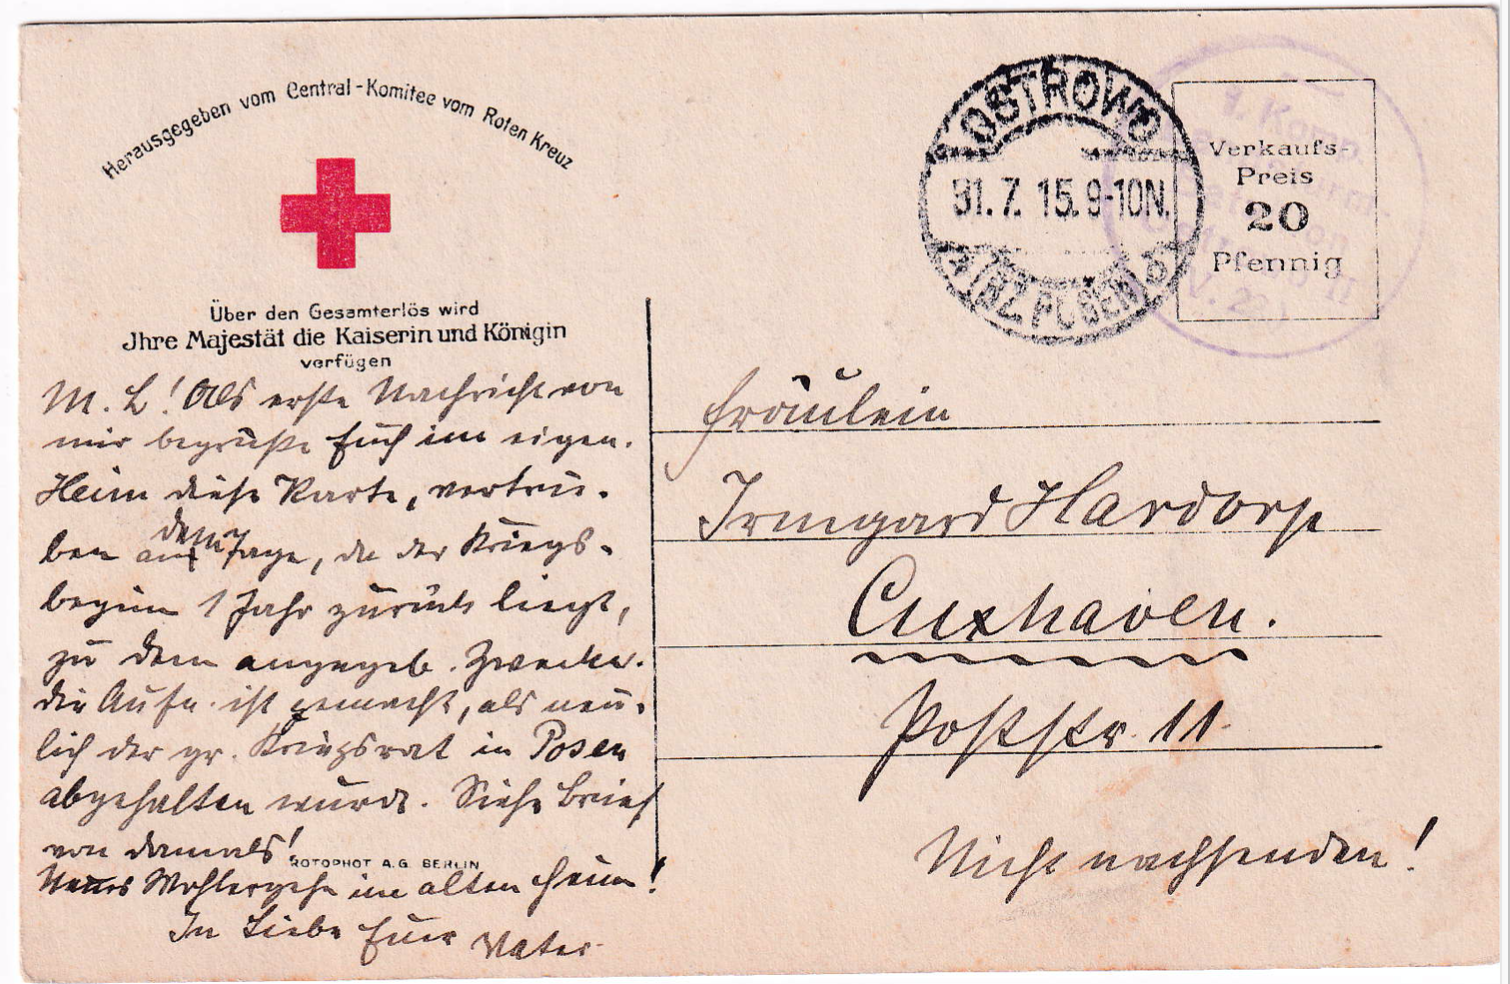 Herausgegeben vom Central-Komitee vom Roten Kreuz
Über den Gesamterlös wird
Jhre Majestät die Kaiserin und Königin
verfügen
OSTROWO
31.7.15.9-10N.
* (BZ. POSEN) b
1. Komp.
Verkaufs-
Preis
20
Pfennig
M. L! Als erste Nachricht von
mir begrüße Euch im eigen.
Heim diese Karte, vertrie-
ben an dem Tage, da der Kriegs-
beginn 1 Jahr zurück liegt,
zu dem angegeb. Zwecke.
die Aufn. ist gemacht, als neu-
lich der gr. Kriegsrat in Posen
abgehalten wurde. Siehe Brief
von damals!
ROTOPHOT A.G. BERLIN
Neues Wohlergehn im alten Heim!
In Liebe Euer Vater.
Fräulein
Irmgard Hardorp
Cuxhaven.
Poststr. 11.
Nicht nachsenden!